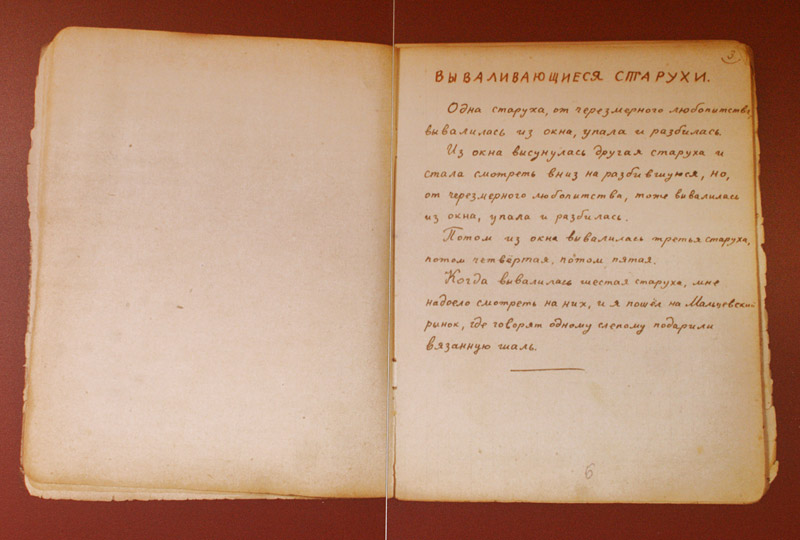 3
ВЫВАЛИВАЮЩИЕСЯ СТАРУХИ.
Одна старуха, от черезмерного любопытства,
вывалилась из окна, упала и разбилась.
Из окна высунулась другая старуха и
стала смотреть вниз на разбившуюся, но,
от черезмерного любопытства, тоже вывалилась
из окна, упала и разбилась.
Потом из окна вывалилась третья старуха,
потом четвёртая, потом пятая.
Когда вывалилась шестая старуха, мне
надоело смотреть на них, и я пошёл на Мальцевский
рынок, где говорят одному слепому подарили
вязанную шаль.
6